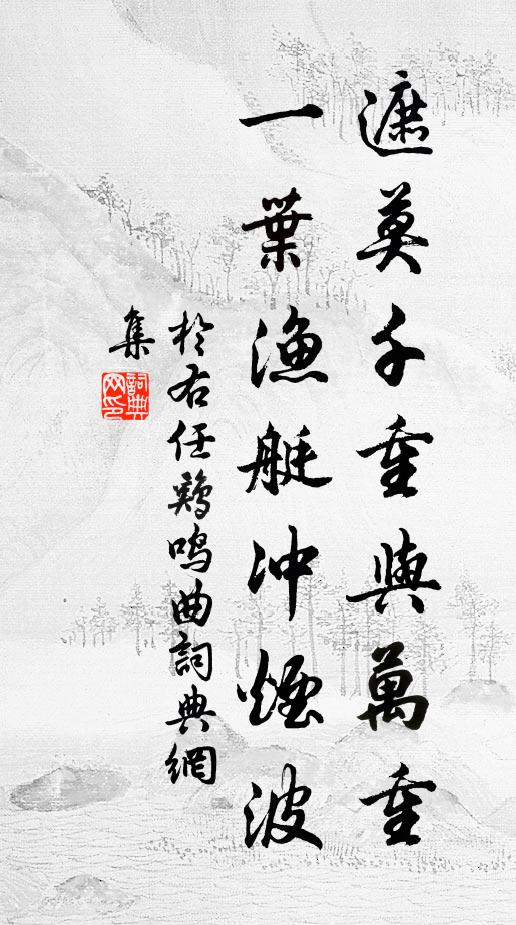 遮莫千重與萬重
一葉漁艇沖煙波
於右任鷄鳴曲詞典網
集
詞典網印